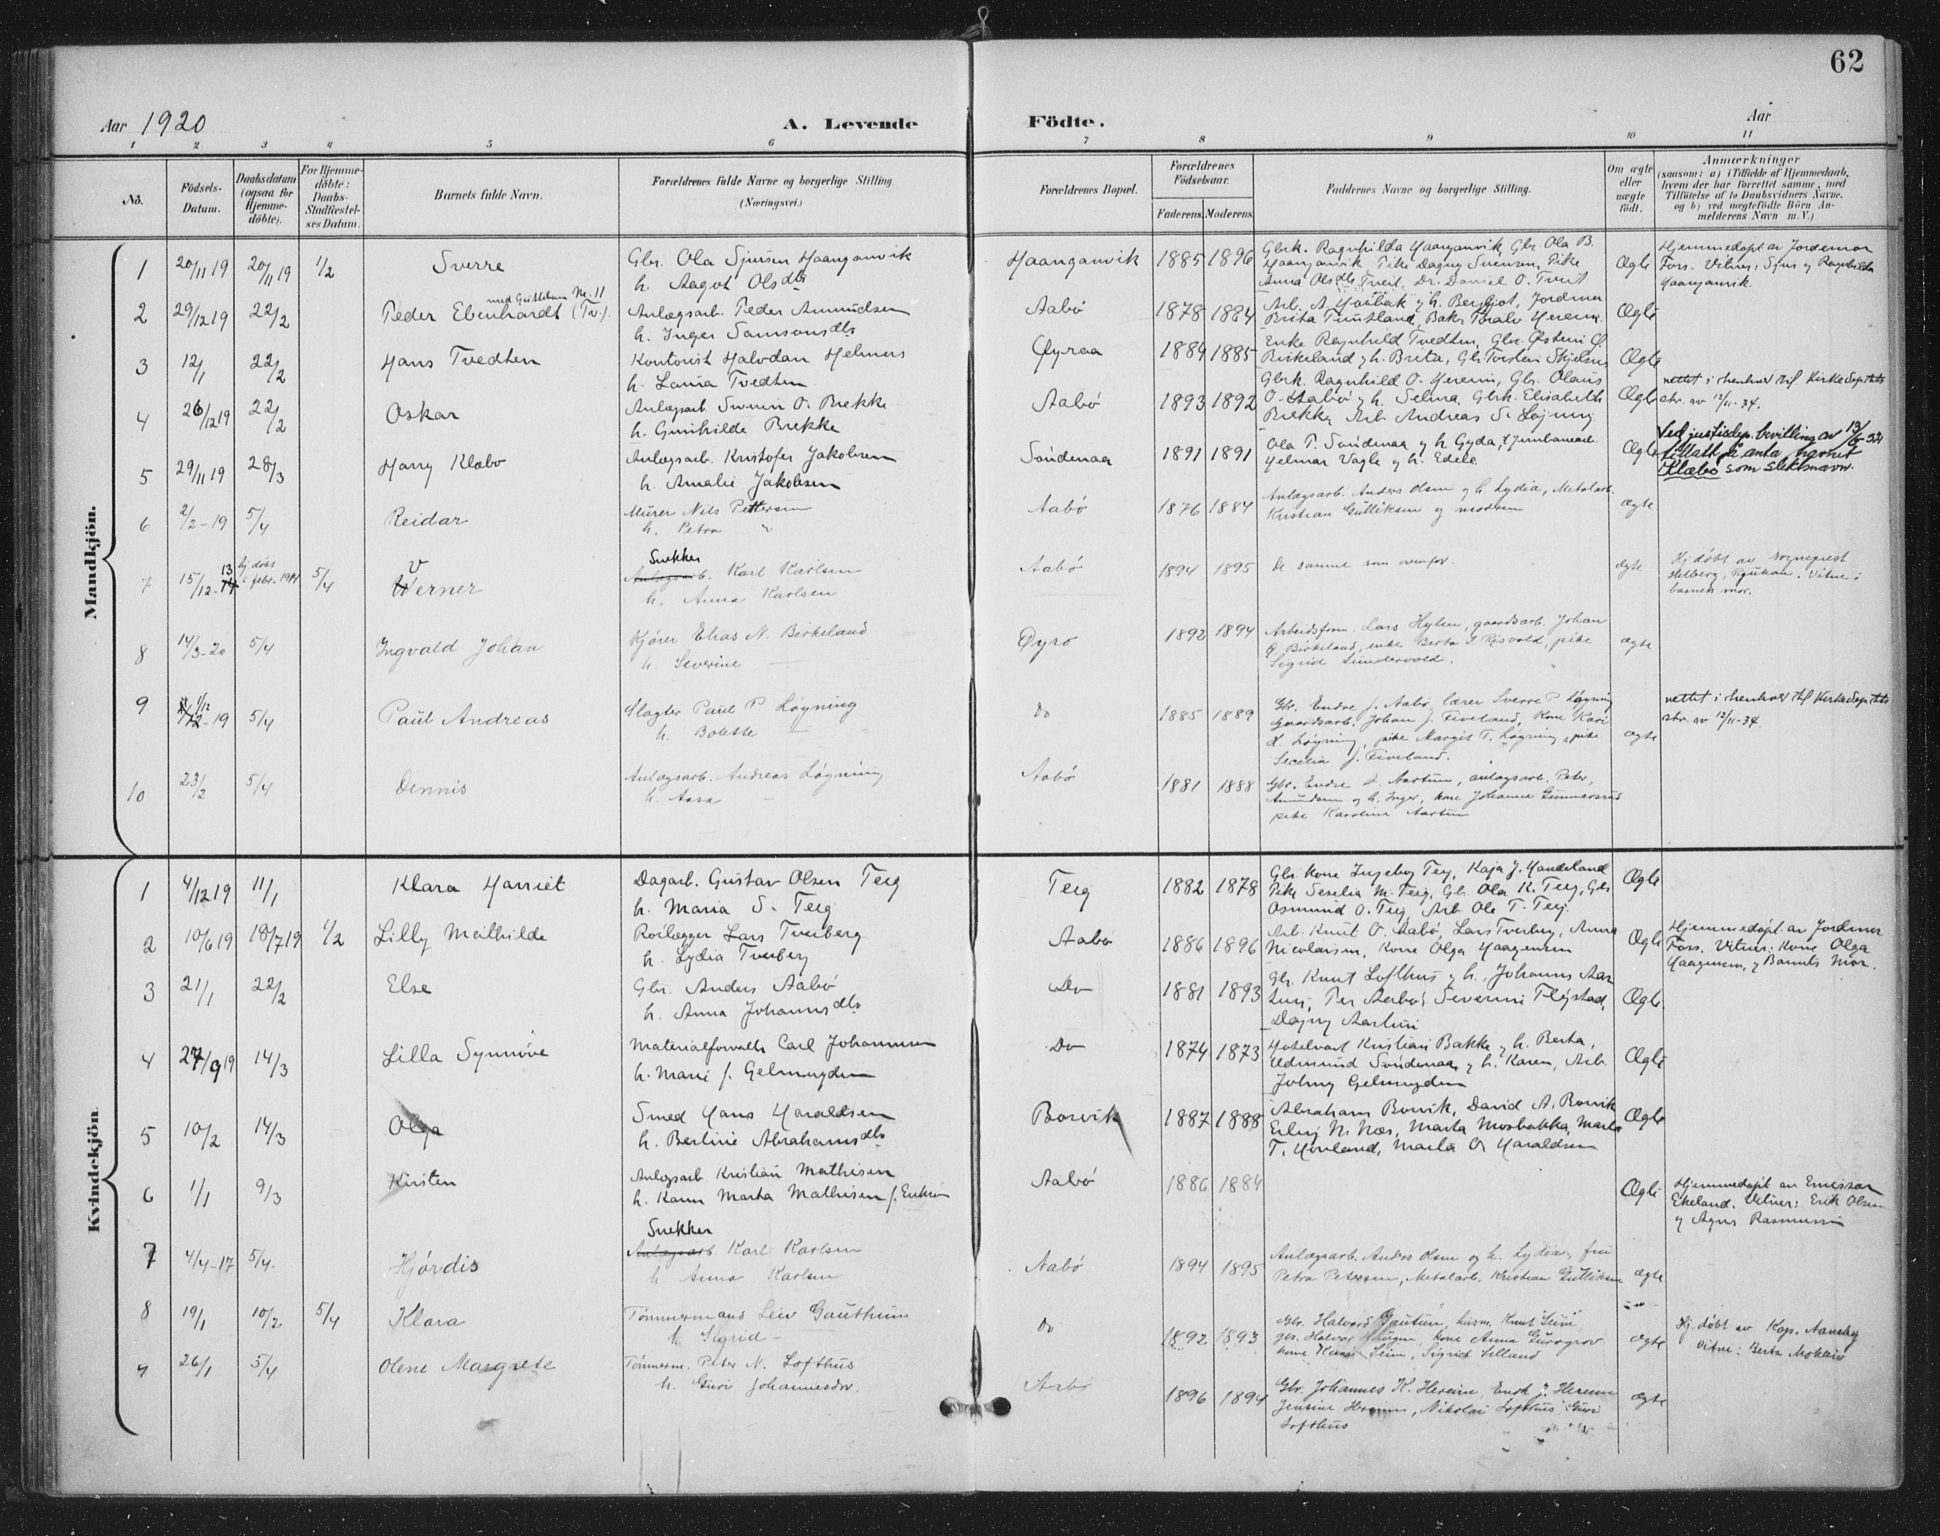 62
Aar 1920 A. Levende Födte. Aar
1 2 3 4 5 6 7 8 9 10 11
No. Födsels-Datum. Daabsdatum (ogsaa for Hjemme-döbte). For Hjemme-döbte: Daabs-Stadfæstel-ses Datum. Barnets fulde Navn. Forældrenes fulde Navne og borgerlige Stilling. (Næringsvei.) Forældrenes Bopæl. Forældrenes Födselsaar. Faderens. Moderens. Faddernes Navne og borgerlige Stilling. Om ægte eller uægte födt. Anmærkninger (saasom: a) i Tilfælde af Hjemmedaab, hvem der har forrettet samme, med Tilföielse af to Daabsvidners Navne, og b) ved uægtefödte Börn An-melderens Navn m. V.)
Mandkjön.
1 20/11 19 20/11 19 1/2 Sverre Gbr. Ola Sjursen Haanganvik
h. Aagot Olsdtr Haanganvik 1885 1896 Gbrk. Ragnhilda Haanganvik, Gbr. Ola B.
Haanganvik Pike Dagny Svensen, Pike
Anna Olsdtr Tveit, Dr. Daniel O. Tveit Ægte Hjemmedøpt av Jordemor
Fors. Vitner: Sjur og Ragnhilda
Haanganvik.
2 29/12 19 22/2 Peder Ebenhardt (Tv.) med Guttebarn Nr. 11 Anlægsarb. Peder Amundsen
h. Inger Samsonsdtr Aabø 1878 1884 Arb. A. Haabak og h. Bergljot, Jordmor
Brita Tuntland, Baker Toralv Hereim. Ægte
3 12/1 22/2 Hans Tvedten Kontorist Halvdan Helmers
h. Laura Tvedten Øyraa 1889 1885 Enke Ragnhild Tvedten, Gbr. Østein Ø.
Birkeland og h. Brita, Gbr. Torstein Ægte
4 26/12 19 22/2 Oskar Anlægsarb Svenn O. Brekke
h. Gunhilde Brekke Aabø 1893 1892 Gbrk. Ragnhild O. Hereim, Gbr. Olaus
O. Aabø og h. Selma, Gbrk. Elisabeth
Brekke, Arb. Andreas S. Løyning Ægte rettet i henhold til Kirkedep.tets
skr. av 12/11-34.
5 29/11 19 28/3 Harry Klæbo Anlægsarb. Kristofer Jakobsen
h. Amalie Jakobsen Søndenaa 1891 1891 Ola T. Søndenaa og h Gyda,
Hjelmar Vagle og h. Edele Ægte Ved justisdep. bevilling av 13/6-22
tillatt å anta navnet
Klæbo som slektsnavn.
6 2/2-19 5/4 Reidar Murer Nils Pettersen
h. Petra " Aabø 1876 1884 Anlægsarb. Anders Olsen og h. Lydia, Metalarb.
Kristian Gulliksen og modren ægte
7 15/12-13 hj. døbt i febr. 1914 5/4 Verner Snekker Karl Karlsen
h. Anna Karlsen Aabø 1894 1895 De samme som ovenfor. ægte Hj. døbt av sogneprest
Stelberg, Rjukan. Vitne:
barnets mor.
8 14/3-20 5/4 Ingvald Johan Kjører Elias N. Birkeland
h. Severine — Øyro 1892 1894 Arbeidsform. Lars Hylen, gaardsarb. Johan
Ø. Birkeland, enke Berta J. Risvold, pike
Sigrid Sundervold. ægte
9 1/12-19 5/4 Paul Andreas Slagter Paul P. Løyning
h. Bolette — Do 1885 1889 Gbr. Endre J. Aabø, lærer Sverre P. Løyning
Gaardsarb. Johan J. Fiveland, Kone Kari
K. Løyning, pike Margit T. Løyning, pike
Secelia J. Fiveland. ægte rettet i henhold til Kirkedep.tets
skr. av 12/11-34.
10 23/2 5/4 Dennis Anlægsarb. Andreas Løyning
h. Aasa — Aabø 1881 1888 Gbr. Endre J. Aartun, anlægsarb. Peter
Amundsen og h. Inger, kone Johanne
pike Karoline Aartun
Kvindekjön.
1 4/12 19 11/1 Klara Harriet Dagarb. Gustav Olsen Teig
h. Maria S. Teig Teig 1882 1878 Gbr. kone Ingeborg Teig, Kaja J. Handeland
Pike Seselia M. Teig, Gbr. Ola K. Teig, Gbr
Osmund O. Teig, Arb. Ole T. Teig. Ægte
2 10/6 19 18/7 19 1/2 Lilly Mathilde Rørlægger Lars Tverberg
h. Lydia Tverberg Aabø 1886 1896 Arb. Knut O. Aabø, Lars Tverberg, Anna
Nicolaisen, Kone Olga Haagensen Ægte Hjemmedøpt av Jordmor
Fors. Vitner: Kone Olga
Haagensen, og Barnets Mor.
3 21/1 22/2 Else Gbr. Anders Aabø
h. Anna Johannsdtr Do 1881 1893 Gbr. Knut Lofthus og h., Johannes Aar-
tun, Per Aarbø, Severine Fløgstad,
Dagny Aartun Ægte.
4 27/9 19 14/3 Lilla Synnøve Materialforvalter Carl Johannesen
h. Marie f. Gelmuyden Do 1874 1873 Hotelvert Kristian Bakke og h. Berta,
Edmund Søndenaa og h. Karen, Arb.
Johny Gelmuyden Ægte
5 10/2 14/3 Olga Smed Hans Haraldsen
h. Bertine Abrahamsdtr Borvik 1887 1888 Abraham Borvik, David A. Borvik
Erling M. Næs, Marta Mosbakka, Marta
T. Hovland, Marta O. Haraldsen Ægte
6 1/1 9/3 Kirsten Anlægsarb Kristian Mathisen
h. Karen Marta Mathisen f. Aabø 1886 1884 Ægte Hjemmedøpt av Emissær
Ekeland. Vitner: Erik Olsen
og Agnes Rasmussen
7 4/4-17 5/4. Hjørdis Snekker Karl Karlsen
h. Anna Karlsen Aabø 1894 1895 Anlægsarb. Anders Olsen og h. Lydia, fru
Petra Petersen, Metalarb. Kristian Gulliksen ægte
8 19/1 10/2 5/4 Klara Tømmermand Leiv Gauthun
h. Sigrid — Do 1892 1893 Gbr. Halvard Gautun, husm. Knut Seim,
gbr. Halvor Haugen, kone Anna
kone Kari Seim, Sigrid Lilland ægte Hj. døbt av Kap. Aanesby
vitne: Berta
9 26/1 5/4 Olene Margrete Tømmerm. Peter N. Lofthus
h. Guri Johannesdtr. Aabø 1896 1894 Gbr. Johannes K. Hereim, Enok J. Hereim
Jensine Hereim, Nikolai Lofthus, Guri
Lofthus ægte